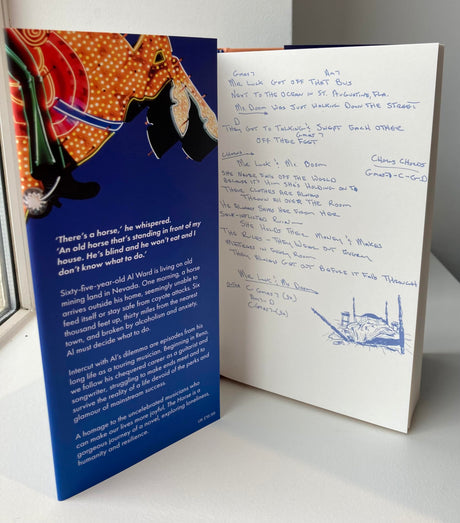 'There's a horse,' he whispered.
'An old horse that's standing in front of my
house. He's blind and he won't eat and I
don't know what to do.'
Sixty-five-year-old Al Ward is living on old
mining land in Nevada. One morning, a horse
arrives outside his home, seemingly unable to
feed itself or stay safe from coyote attacks. Six
thousand feet up, thirty miles from the nearest
town, and broken by alcoholism and anxiety,
Al must decide what to do.
Intercut with Al's dilemma are episodes from his
long life as a touring musician. Beginning in Reno,
we follow his chequered career as a guitarist and
songwriter, struggling to make ends meet and to
survive the reality of a life devoid of the perks and
glamour of mainstream success.
A homage to the uncelebrated musicians who
can make our lives more joyful, The Horse is a
gorgeous journey of a novel, exploring loneliness,
humanity and resilience.
UK £16.99
Gmaj7 Am7
Mr Luck got off that bus
Next to the ocean in St. Augustine, Fla.
Ms Doom was just walking down the street
D
They got to talking & swept each other
Gmaj7
off their feet
Chorus
Mr Luck & Ms Doom
Chorus Chords
Gmaj7-C-Gm-D
She never falls off the world
because it's him she's holding on to
Their clothes are always
thrown all over the room
He always saves her from her
self-inflicted ruin
She holds their money & makes
the rules - they wear out every
mattress in every room
They always get out before it ends through
Mr Luck & Ms Doom
C Gmaj7 (3x)
Am7- D
C-Gmaj7-(3x)